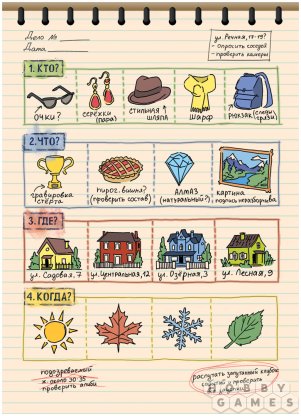 Дело №
Дата
ул. Речная, 17-19?
- опросить соседей
- проверить камеры
1. КТО?
очки?
серёжки
(пара)
стильная
шляпа
шарф
рюкзак
(следы
грязи)
2. ЧТО?
гравировка
стёрта
пирог. вишня?
(проверить состав)
АЛМАЗ
(натуральный?)
картина
подпись неразборчива
3. ГДЕ?
ул. Садовая, 7
ул. Центральная, 12
ул. Озёрная, 3
ул. Лесная, 9
4. КОГДА?
подозреваемый
ж. около 30-35
проверить алиби
распутать запутанный клубок
событий и проверить
HOBBY
GAMES